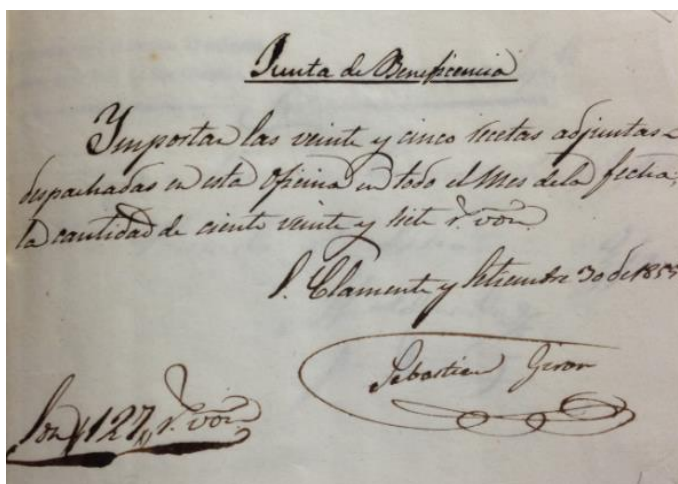 Junta de Beneficencia
Importan las veinte y cinco recetas adjuntas
despachadas en esta Oficina en todo el Mes dela fecha,
la cantidad de ciento veinte y siete r.s von.
S. Clemente y Setiembre 30 de 185
Sebastian Giron
Son 127 r.s von